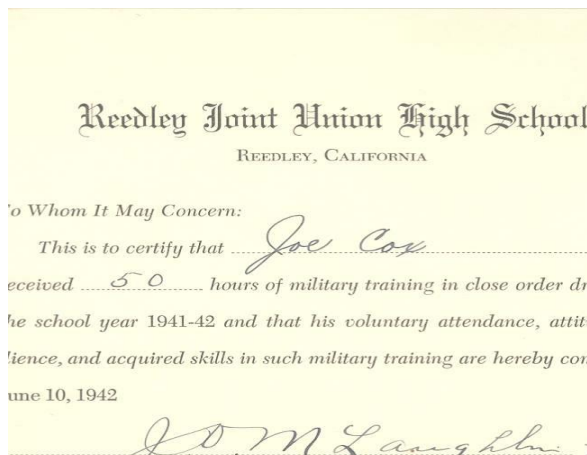 Reedley Joint Union High School
REEDLEY, CALIFORNIA
To Whom It May Concern:
This is to certify that Joe Cox
eceived 50 hours of military training in close order dr
he school year 1941-42 and that his voluntary attendance, attit
lience, and acquired skills in such military training are hereby con
une 10, 1942
J D. McLaughlin